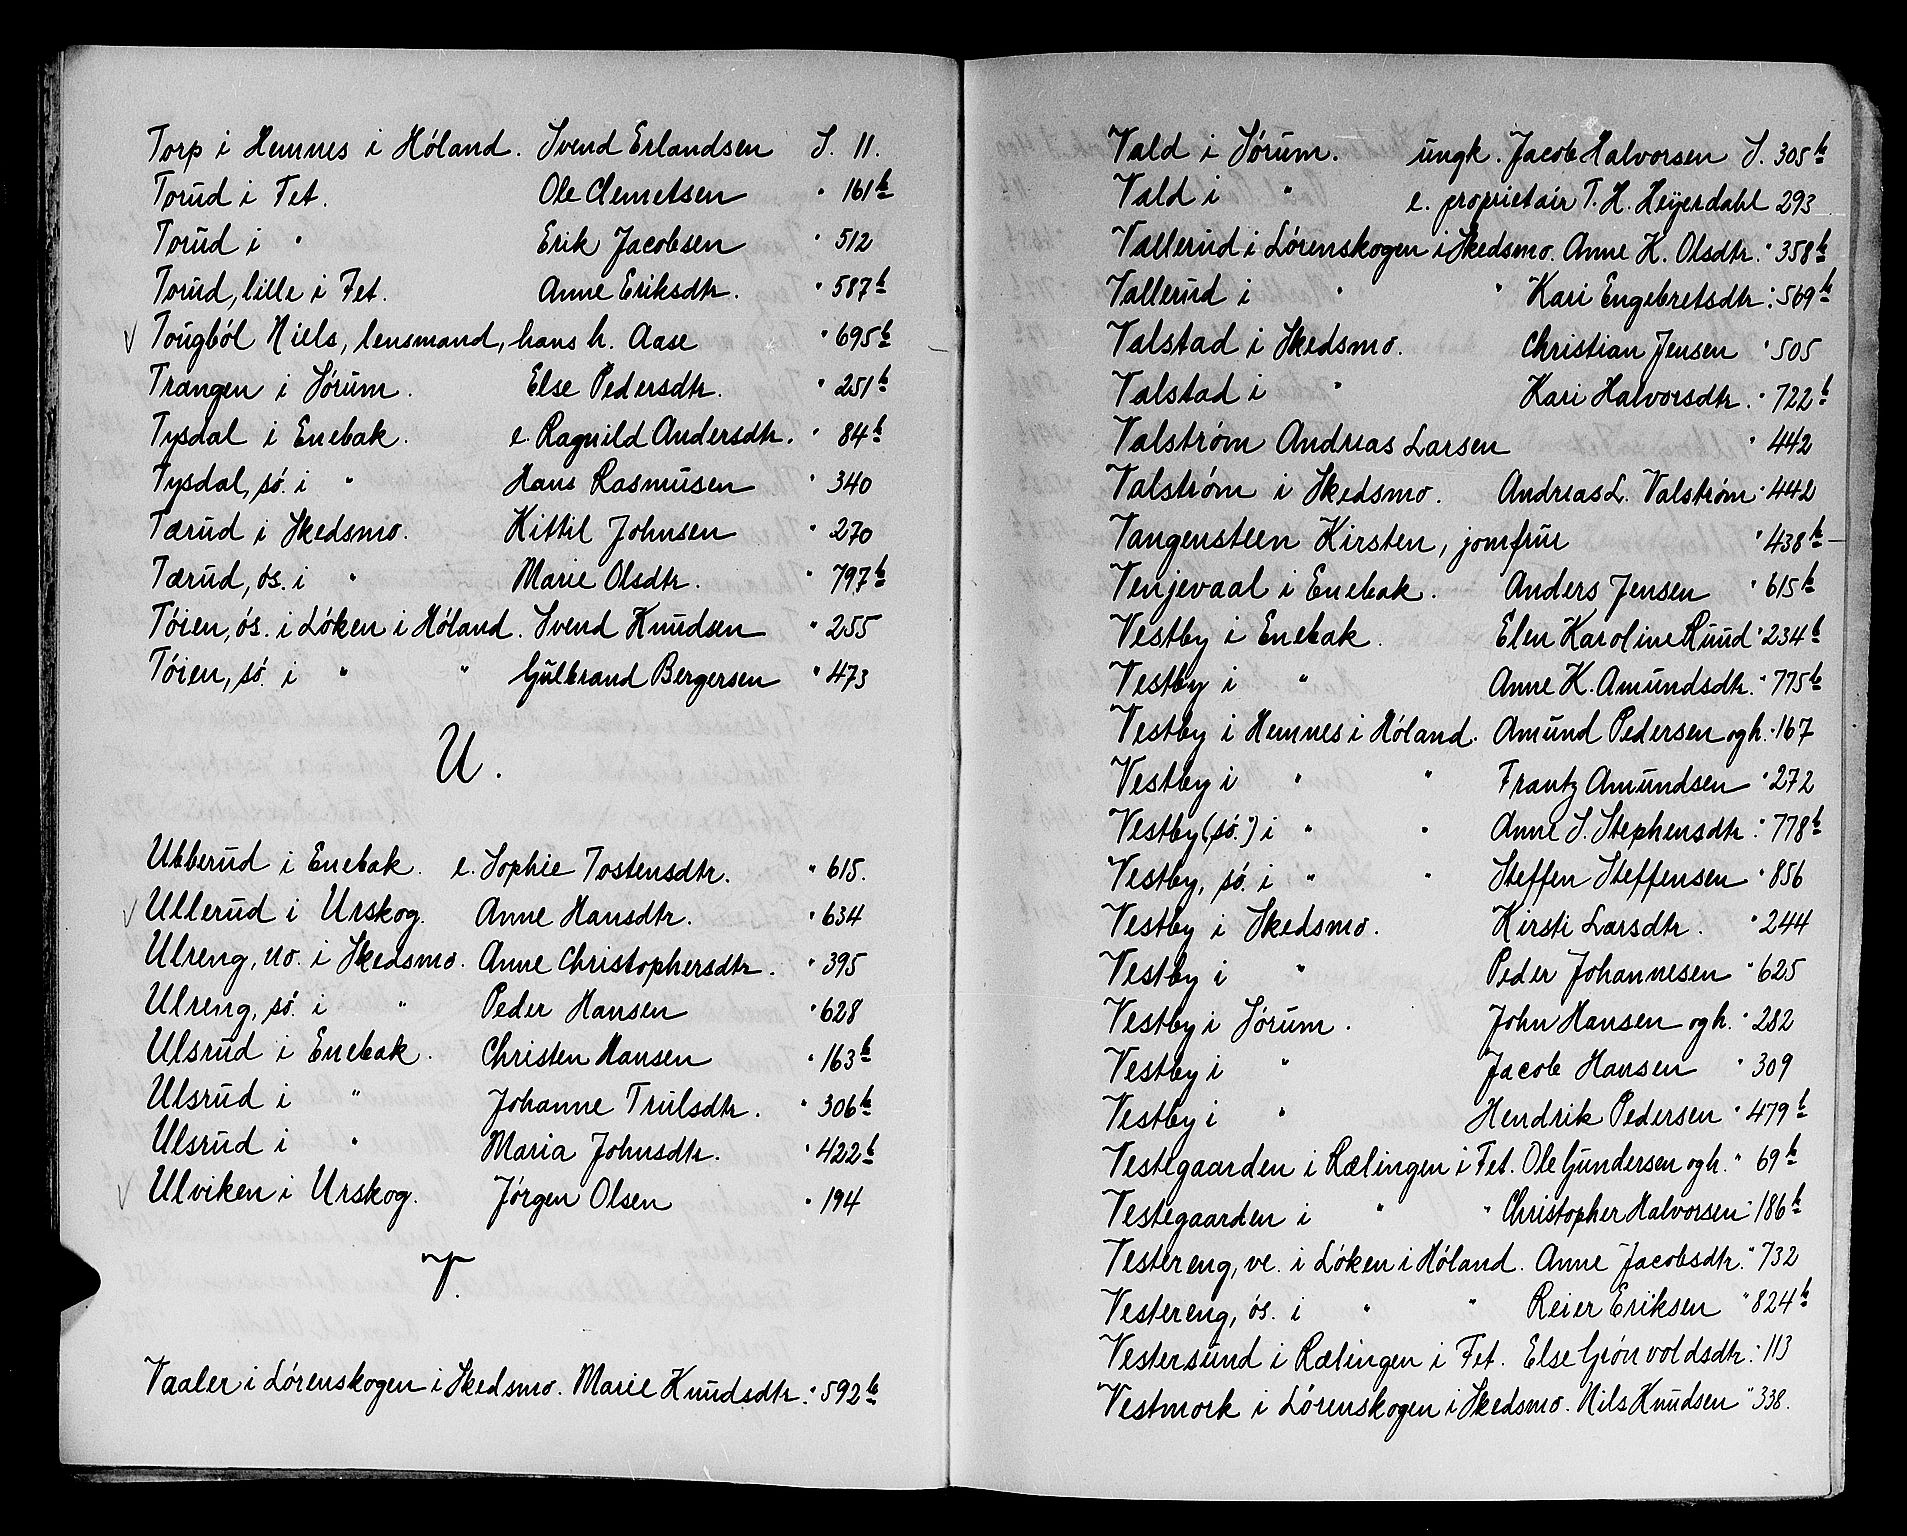 Torp i Hemnes i Höland. Svend Erlandsen S. 11.
Torud i Fet. Ole Clemetsen " 161b
Torud i " Erik Jacobsen " 512
Torud, lille i Fet. Anne Eriksdtr. " 587b
Tougböl Niels, lensmand, hans h. Aase " 695b
Trangen i Sörum. Else Pedersdtr. " 251b
Tysdal i Enebak. e. Ragnild Andersdtr. " 84b
Tysdal, sö. i " Hans Rasmusen " 340
Tærud i Skedsmo. Kittil Johnsen " 270
Tærud, ös. i " Marie Olsdtr. " 797b
Töien, ös. i Löken i Höland. Svend Knudsen " 255
Töien, sö. i " " Gulbrand Bergersen " 473
U.
Ubberud i Enebak. e. Sophie Tostensdtr. " 615.
Ullerud i Urskog. Anne Hansdtr. " 634
Ulreng, no. i Skedsmo. Anne Christophersdtr. " 395
Ulreng, sö. i " Peder Hansen " 628
Ulsrud i Enebak. Christen Hansen " 163b
Ulsrud i " Johanne Trulsdtr. " 306b
Ulsrud i " Maria Johnsdtr. " 422b
Ulviken i Urskog. Jörgen Olsen " 194
V.
Vaaler i Lörenskogen i Skedsmo. Marie Knudsdtr. " 592b
Vald i Sörum. ungk. Jacob Halvorsen S. 305b
Vald i " e. proprietair T. H. Heyerdahl 293
Vallerud i Lörenskogen i Skedsmo. Anne K. Olsdtr. " 358b
Vallerud i " " Kari Engebretsdtr. " 569b
Valstad i Skedsmo. Christian Jensen " 505
Valstad i " Kari Halvorsdtr. " 722b
Valström Andreas Larsen " 442
Valström i Skedsmo. Andreas L. Valström " 442
Vangensteen Kirsten, jomfru " 438b
Venjevaal i Enebak. Anders Jensen " 615b
Vestby i Enebak. Elen Karoline Ruud " 234b
Vestby i " Anne K. Amundsdtr. " 775b
Vestby i Hemnes i Höland. Amund Pedersen og h. " 167
Vestby i " " Frantz Amundsen " 272
Vestby (sö.") i " " Anne S. Stephensdtr. " 778b
Vestby, sö. i " " Steffen Steffensen " 856
Vestby i Skedsmo. Kirsti Larsdtr. " 244
Vestby i " Peder Johannesen " 625
Vestby i Sörum. John Hansen og h. " 282
Vestby i " Jacob Hansen " 309
Vestby i " Hendrik Pedersen " 479b
Vestegaarden i Rælingen i Fet. Ole Gundersen og h. " 69b
Vestegaarden i " " Christopher Halvorsen " 186b
Vestereng, ve. i Löken i Höland. Anne Jacobsdtr. " 732
Vestereng, ös. i " " Reier Eriksen " 824b
Vestersund i Rælingen i Fet. Else Grönvoldsdtr. " 113
Vestmork i Lörenskogen i Skedsmo. Nils Knudsen " 338.